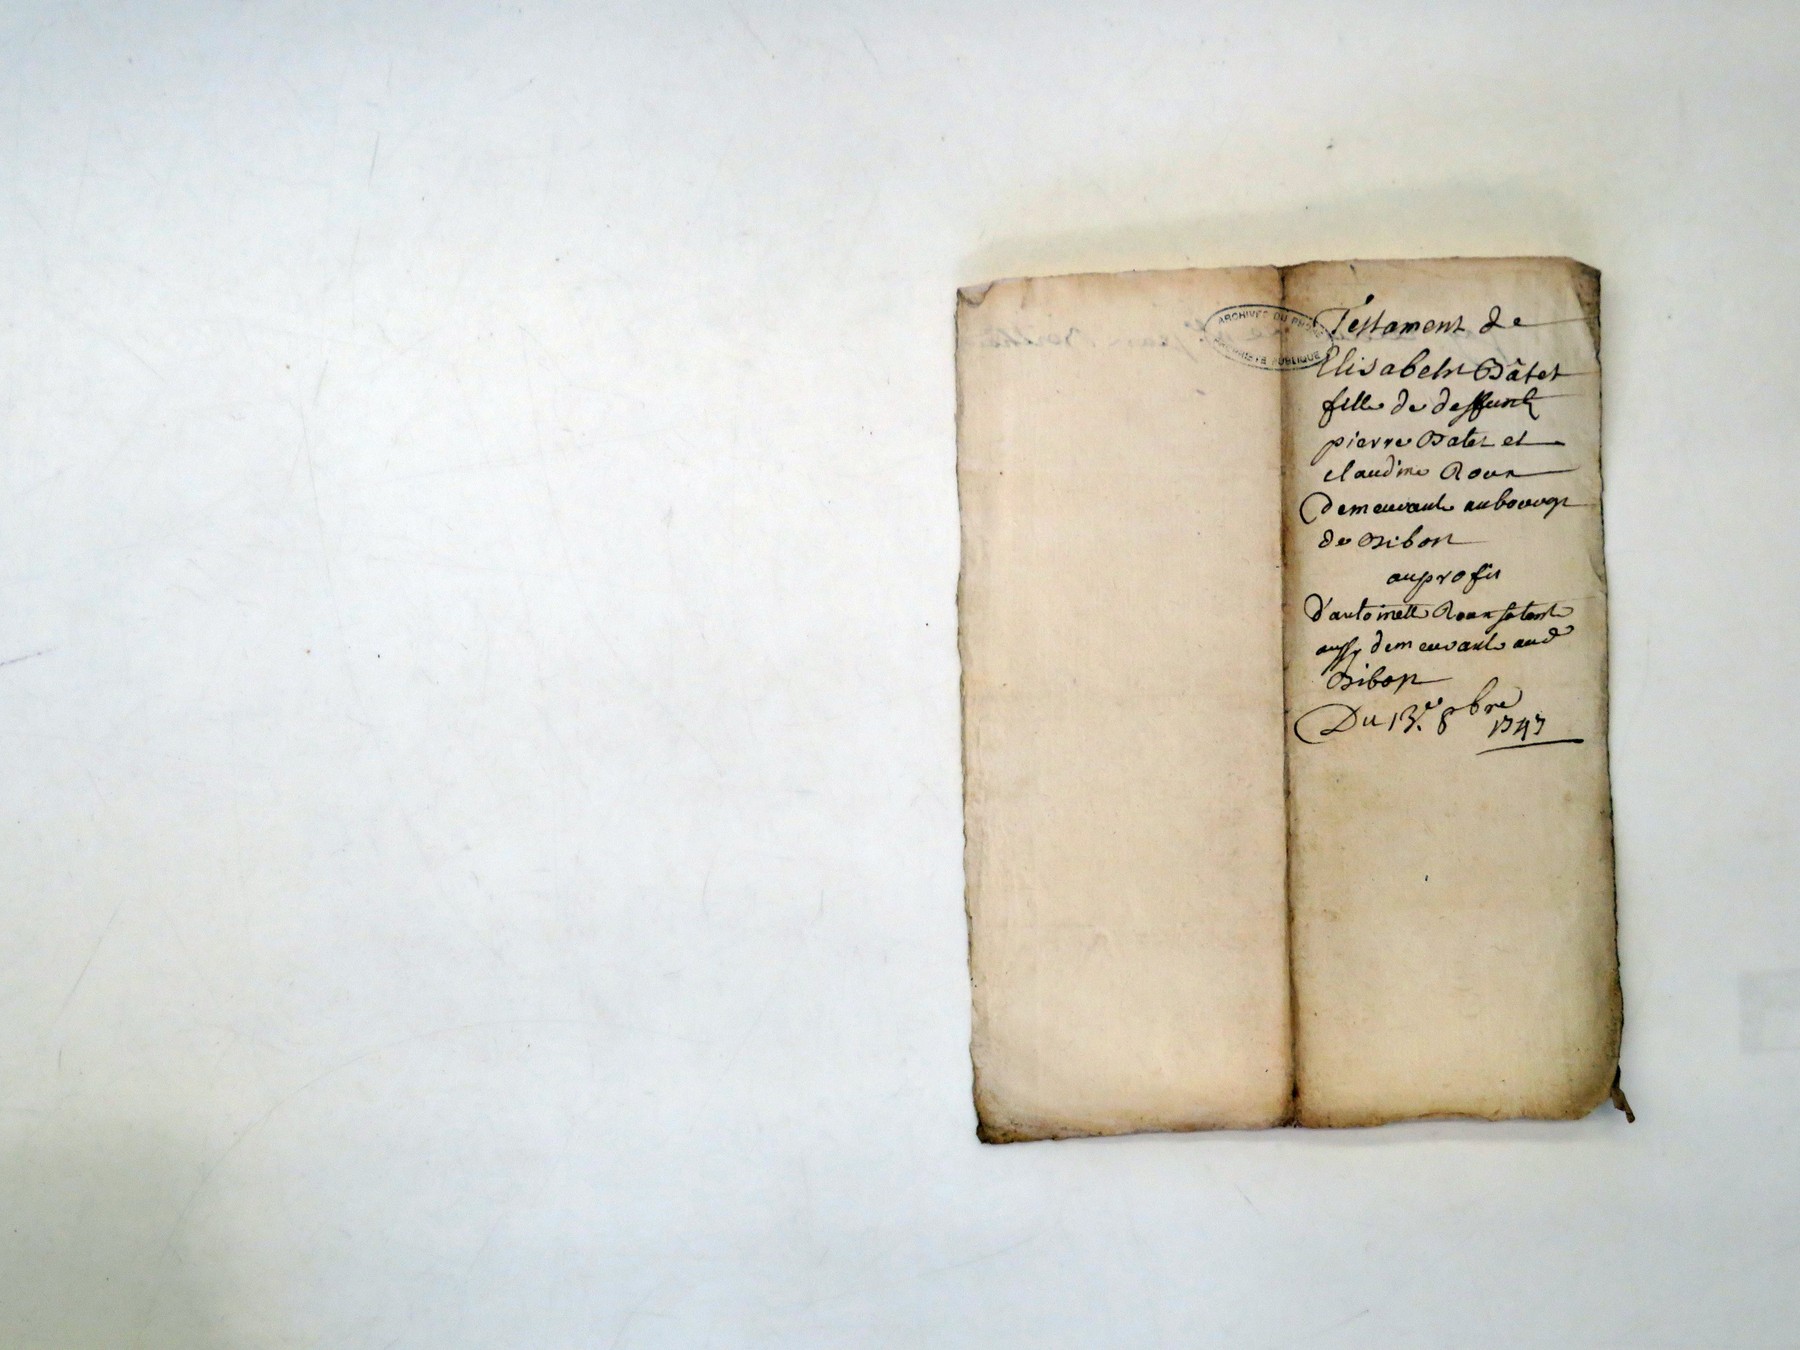 ARCHIVES DU RHONE
PROPRIETE PUBLIQUE
Testament de
Elisabeht Bâtet
fille de deffunt
pierre Batet et
claudine Roux
demeurante aubourg
de Bibost
auprofit
d'antoinette Roux satante
aussy demeurante aud
Bibost
Du 13.e 8bre
1747